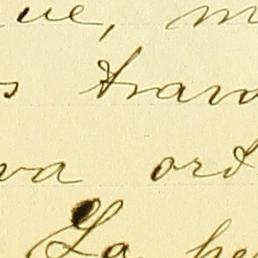 ue, m
s trava
va ord
La he